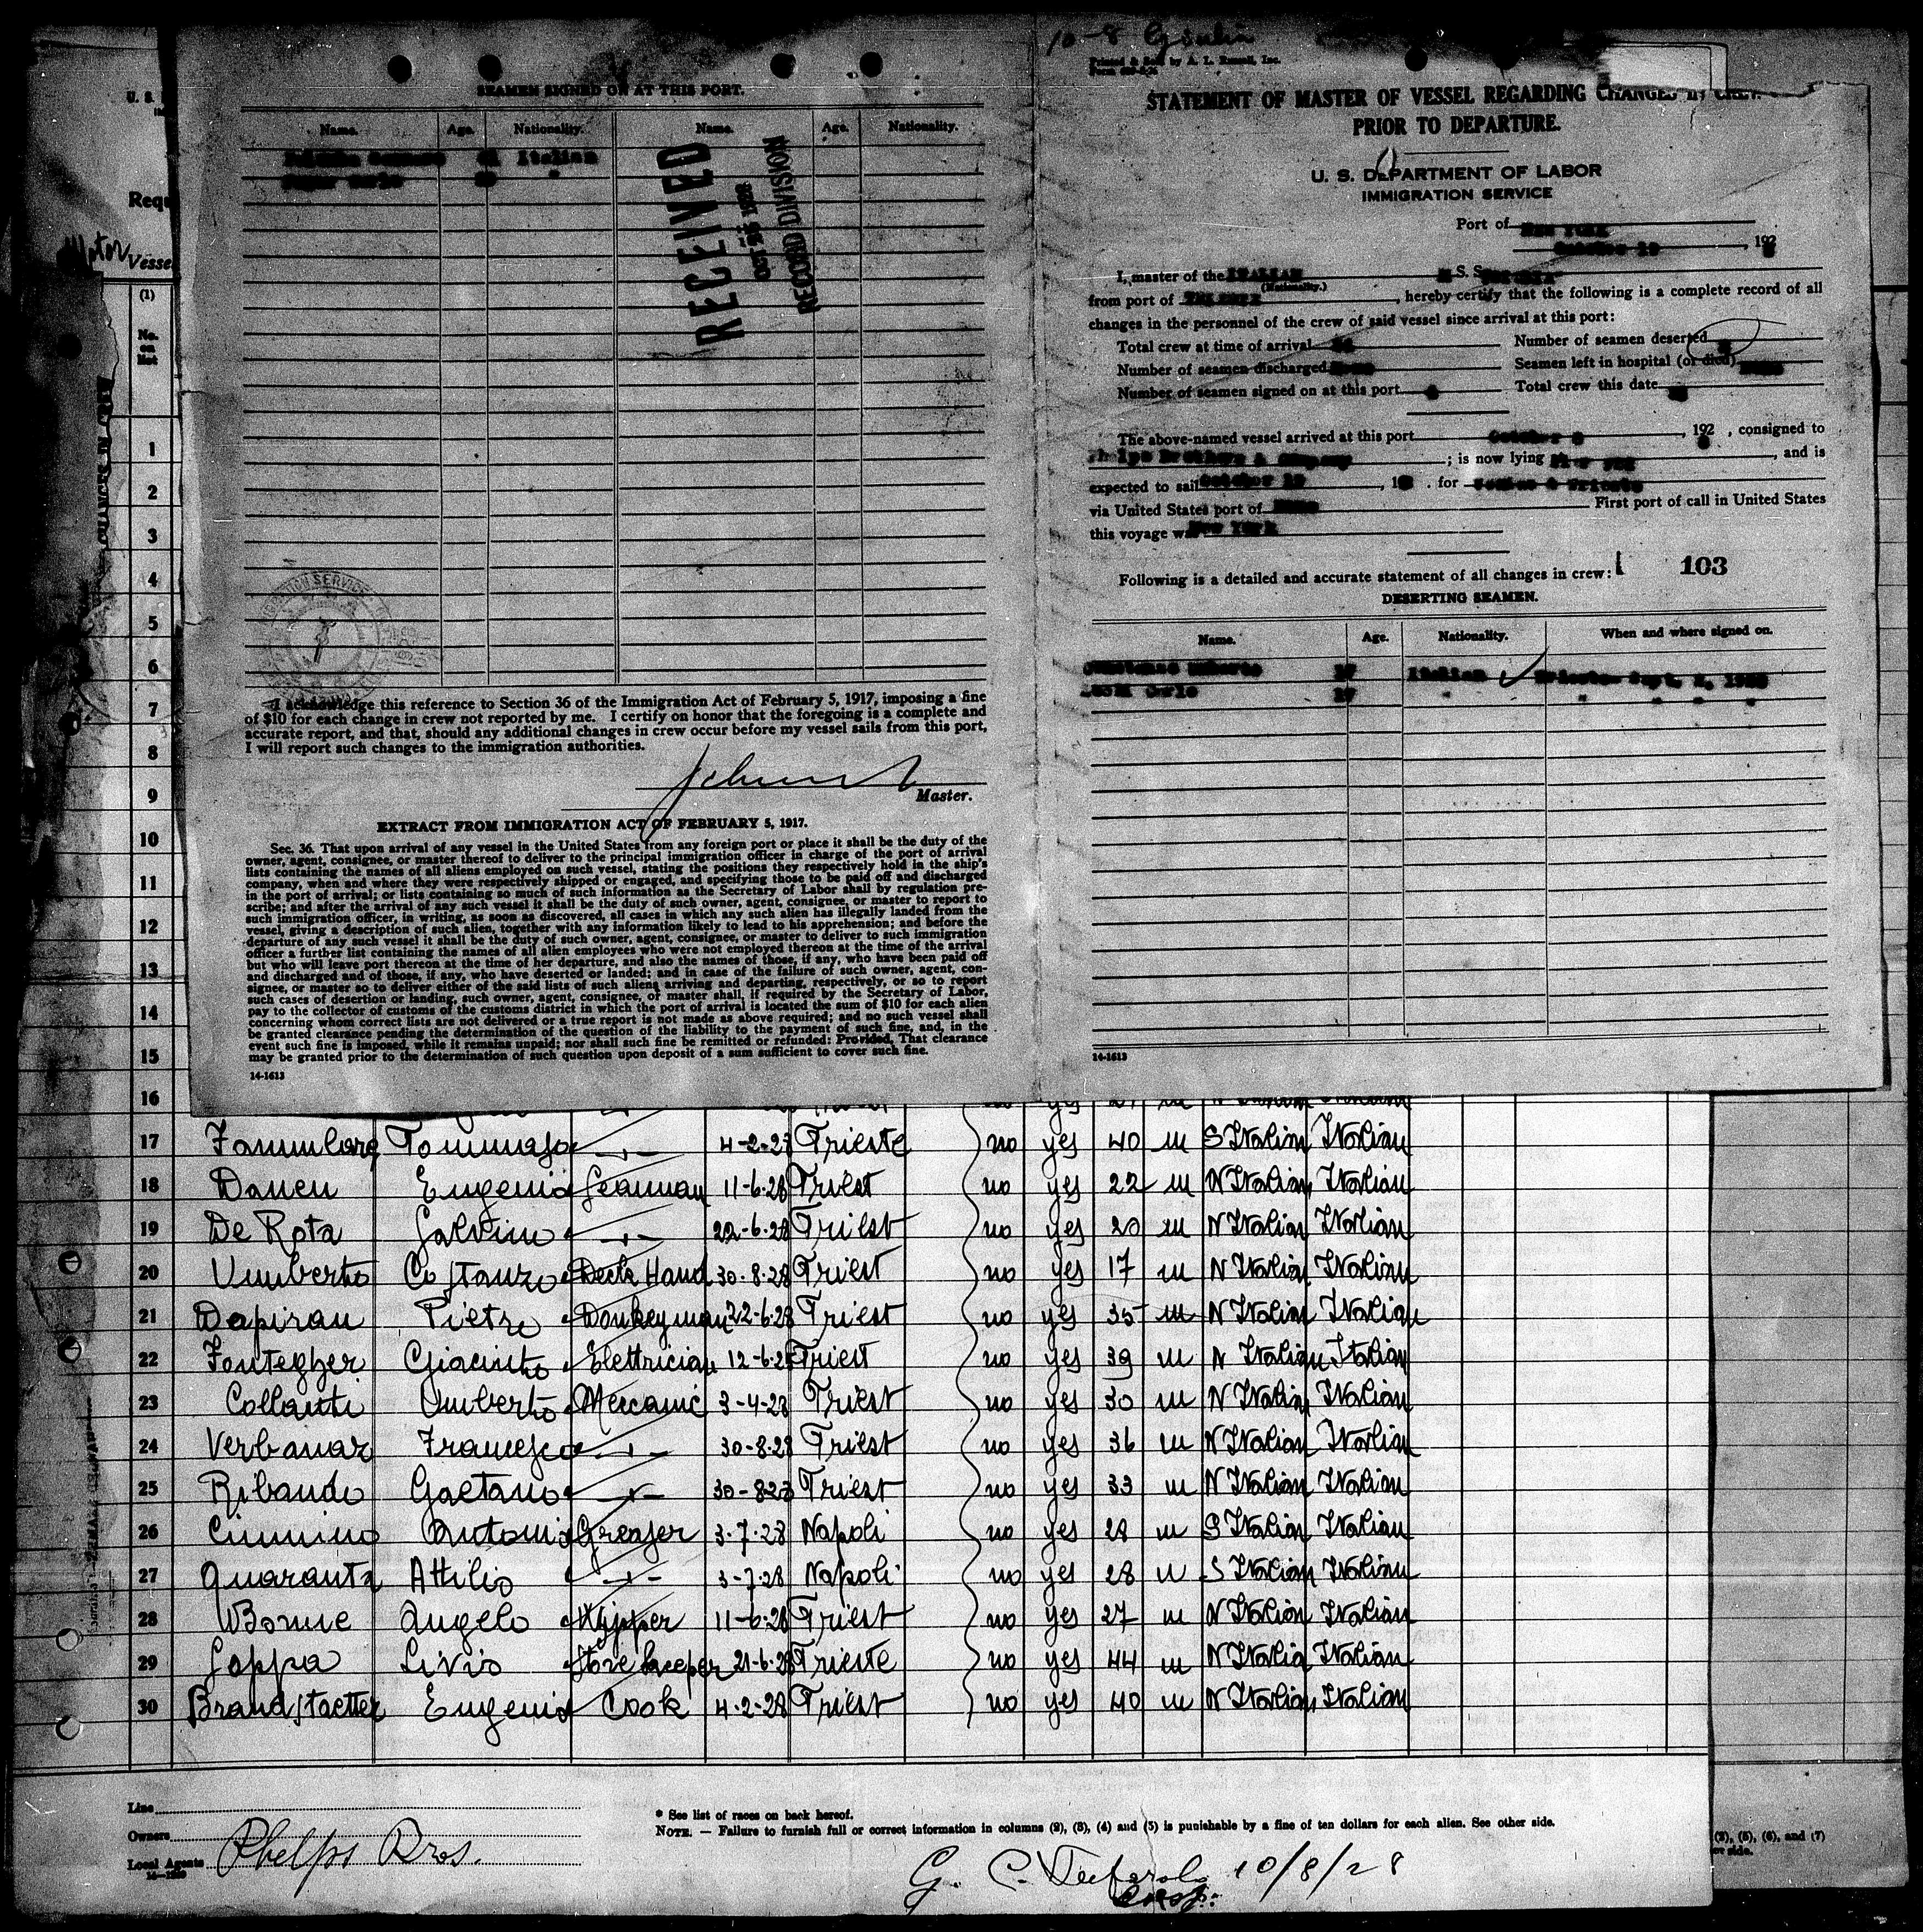 SEAMEN SIGNED ON AT THIS PORT.
Name. Age. Nationality. Name. Age. Nationality.
Italian
"
RECEIVED
RECORD DIVISION
I acknowledge this reference to Section 36 of the Immigration Act of February 5, 1917, imposing a fine
of $10 for each change in crew not reported by me. I certify on honor that the foregoing is a complete and
accurate report, and that, should any additional changes in crew occur before my vessel sails from this port,
I will report such changes to the immigration authorities.
Master.
EXTRACT FROM IMMIGRATION ACT OF FEBRUARY 5, 1917.
Sec. 36. That upon arrival of any vessel in the United States from any foreign port or place it shall be the duty of the
owner, agent, consignee, or master thereof to deliver to the principal immigration officer in charge of the port of arrival
lists containing the names of all aliens employed on such vessel, stating the positions they respectively hold in the ship's
company, when and where they were respectively shipped or engaged, and specifying those to be paid off and discharged
in the port of arrival; or lists containing so much of such information as the Secretary of Labor shall by regulation pre-
scribe; and after the arrival of any such vessel it shall be the duty of such owner, agent, consignee, or master to report to
such immigration officer, in writing, as soon as discovered, all cases in which any such alien has illegally landed from the
vessel, giving a description of such alien, together with any information likely to lead to his apprehension; and before the
departure of any such vessel it shall be the duty of such owner, agent, consignee, or master to deliver to such immigration
officer a further list containing the names of all alien employees who were not employed thereon at the time of the arrival
but who will leave port thereon at the time of her departure, and also the names of those, if any, who have been paid off
and discharged and of those, if any, who have deserted or landed; and in case of the failure of such owner, agent, con-
signee, or master so to deliver either of the said lists of such aliens arriving and departing, respectively, or so to report
such cases of desertion or landing, such owner, agent, consignee, or master shall, if required by the Secretary of Labor,
pay to the collector of customs of the customs district in which the port of arrival is located the sum of $10 for each alien
concerning whom correct lists are not delivered or a true report is not made as above required; and no such vessel shall
be granted clearance pending the determination of the question of the liability to the payment of such fine, and, in the
event such fine is imposed, while it remains unpaid; nor shall such fine be remitted or refunded: Provided, That clearance
may be granted prior to the determination of such question upon deposit of a sum sufficient to cover such fine.
14-1613
10-8
Printed & Sold by A. L. Russell, Inc.
STATEMENT OF MASTER OF VESSEL REGARDING CHANGES IN CREW
PRIOR TO DEPARTURE.
U. S. DEPARTMENT OF LABOR
IMMIGRATION SERVICE
Port of New York
October 19, 192
I, master of the ITALIAN S. S.
(Nationality.)
from port of , hereby certify that the following is a complete record of all
changes in the personnel of the crew of said vessel since arrival at this port:
Total crew at time of arrival Number of seamen deserted
Number of seamen discharged Seamen left in hospital (or died)
Number of seamen signed on at this port Total crew this date
The above-named vessel arrived at this port October 8, 192 , consigned to
Phelps Brothers & Company ; is now lying , and is
expected to sail October , 19 . for
via United States port of First port of call in United States
this voyage was New York
Following is a detailed and accurate statement of all changes in crew: 103
DESERTING SEAMEN.
Name. Age. Nationality. When and where signed on.
Umberto 17 Italian Trieste Sept.
Carlo 17 " " " " "
14-1613
U. S.
Motor Vessel
(1)
No. on list
CHANGES IN CREW
1
2
3
4
5
6
7
8
9
10
11
12
13
14
15
16
17 Tommaso -"- 4-2-28 Trieste no yes 40 m S Italian Italian
18 Daneu Eugenio Seaman 11-6-28 Triest no yes 22 m N Italian Italian
19 De Rota Galvino -"- 22-6-28 Triest no yes 20 m N Italian Italian
20 Umberto Costanzo Deck Hand 30-8-28 Triest no yes 17 m N Italian Italian
21 Dapiran Pietro Donkeyman 22-6-28 Triest no yes 35 m N Italian Italian
22 Fontegher Giacinto Elettrician 12-6-28 Triest no yes 39 m N Italian Italian
23 Umberto Meccanic 3-4-28 Triest no yes 30 m N Italian Italian
24 Verbanar Francesco -"- 30-8-28 Triest no yes 36 m N Italian Italian
25 Ribaudo Gaetano -"- 30-8-28 Triest no yes 33 m N Italian Italian
26 Cimmino Antonio Greaser 3-7-28 Napoli no yes 28 m S Italian Italian
27 Quaranta Attilio -"- 3-7-28 Napoli no yes 28 m S Italian Italian
28 Bonne Angelo Wipper 11-6-28 Triest no yes 27 m N Italian Italian
29 Goppa Livio Store keeper 21-6-28 Trieste no yes 44 m N Italian Italian
30 Brandstaetter Eugenio Cook 4-2-28 Triest no yes 40 m N Italian Italian
Line
Owners
Local Agents Phelps Bros.
* See list of races on back hereof.
NOTE. — Failure to furnish full or correct information in columns (2), (3), (4) and (5) is punishable by a fine of ten dollars for each alien. See other side.
G. C. 10/8/28
(2), (5), (6), and (7)